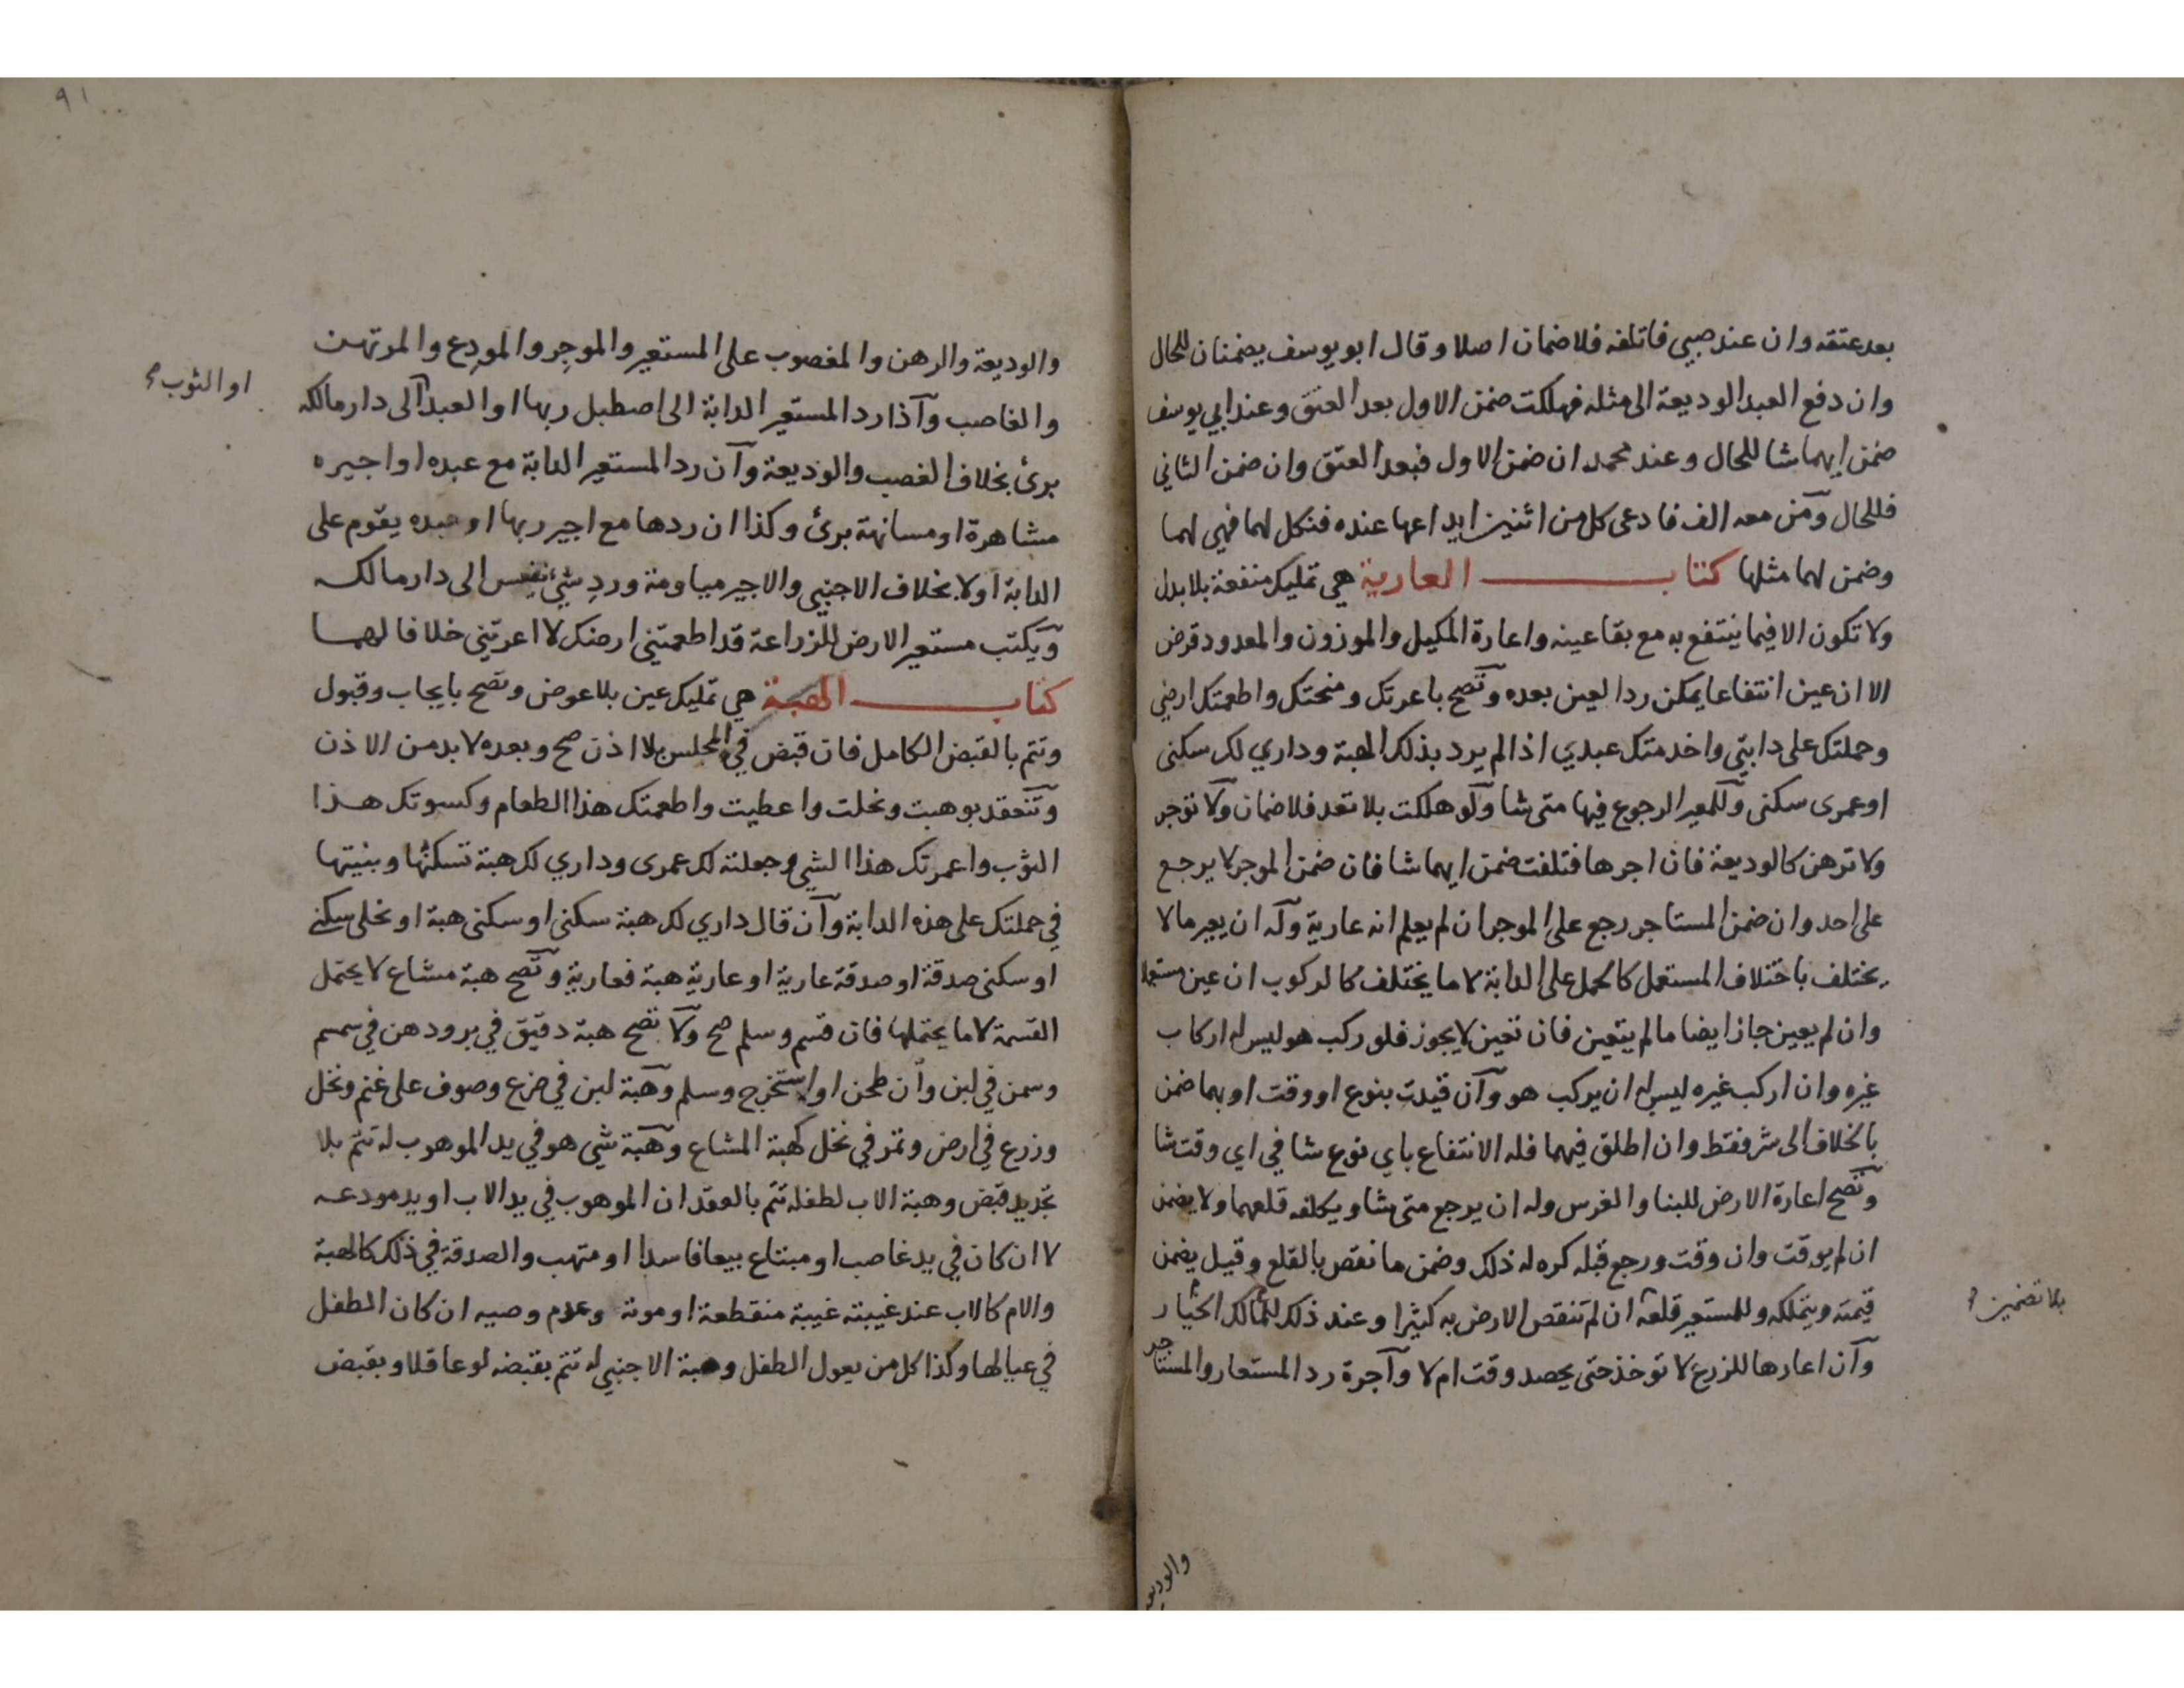 بعد عتقه وان عند صبي فاتلفه فلا ضمان اصلا وقال ابو يوسف يضمنان للحال
وان دفع العبد الوديعة الى مثله فهلكت ضمن الاول بعد العتق وعند ابي يوسف
ضمن ايهما شا للحال وعند محمد ان ضمن الاول فبعد العتق وان ضمن الثاني
فللحال ومن معه الف فادعى كل من اثنين ايداعها عنده فنكل لهما فهي لهما
وضمن لهما مثلها كتاب العارية هي تمليك منفعة بلا بدل
ولا تكون الا فيما ينتفع به مع بقا عينه واعارة المكيل والموزون والمعدود قرض
الا ان عين انتفاعا يمكن رد العين بعده وتصح باعرتك ومنحتك واطعمتك ارضي
وحملتك على دابتي واخدمتك عبدي اذا لم يرد بذلك الهبة وداري لك سكنى
او عمرى سكنى وللمعير الرجوع فيها متى شا ولو هلكت بلا تعد فلا ضمان ولا توجر
ولا ترهن كالوديعة فان اجرها فتلفت ضمن ايهما شا فان ضمن الموجر لا يرجع
على احد وان ضمن المستاجر رجع على الموجر ان لم يعلم انه عارية وله ان يعير ما لا
يختلف باختلاف المستعمل كالحمل على الدابة لا ما يختلف كالركوب ان عين مستعملا
وان لم يعين جاز ايضا ما لم يتعين فان تعين لا يجوز فلو ركب هو ليس له اركاب
غيره وان اركب غيره ليس له ان يركب هو وان قيدت بنوع او وقت او بهما ضمن
بالخلاف الى شر فقط وان اطلق فيهما فله الانتفاع باي نوع شا في اي وقت شا
وتصح اعارة الارض للبنا والغرس وله ان يرجع متى شا ويكلفه قلعهما ولا يضمن
ان لم يوقت وان وقت ورجع قبله كره له ذلك وضمن ما نقص بالقلع وقيل يضمن
قيمته ويتملكه وللمستعير قلعه ان لم تنقص الارض به كثيرا وعند ذلك للمالك الخيار
بلا تضمين
وان اعارها للزرع لا توخذ حتى يحصد وقت ام لا واجرة رد المستعار والمستاجر
والوديعة
٩١
والوديعة والرهن والمغصوب على المستعير والموجر والمودع والمرتهن
والغاصب واذا رد المستعير الدابة الى اصطبل ربها او العبد الى دار مالكه
او الثوب
برئ بخلاف الغصب والوديعة وان رد المستعير الدابة مع عبده او اجيره
مشاهرة او مسانهة برئ وكذا ان ردها مع اجير ربها او عبده يقوم على
الدابة اولا بخلاف الاجنبي والاجير مياومة ورد شئ نفيس الى دار مالكه
ويكتب مستعير الارض للزراعة قد اطعمتني ارضك لا اعرتني خلافا لهما
كتاب الهبة هي تمليك عين بلا عوض وتصح بايجاب وقبول
وتتم بالقبض الكامل فان قبض في المجلس بلا اذن صح وبعده لا بد من الاذن
وتنعقد بوهبت ونحلت واعطيت واطعمتك هذا الطعام وكسوتك هذا
الثوب واعمرتك هذا الشي وجعلته لك عمرى وداري لك هبة تسكنها وبنيتها
في حملتك على هذه الدابة وان قال داري لك هبة سكنى او سكنى هبة او نحلى سكنى
او سكنى صدقة او صدقة عارية او عارية هبة فعارية وتصح هبة مشاع لا يحتمل
القسمة لا ما يحتملها فان قسم وسلم صح ولا تصح هبة دقيق في بر ودهن في سمسم
وسمن في لبن وان طحن او استخرج وسلم وهبة لبن في ضرع وصوف على غنم ونخل
وزرع في ارض وتمر في نخل كهبة المشاع وهبة شي هو في يد الموهوب له تتم بلا
تجديد قبض وهبة الاب لطفله تتم بالعقد ان الموهوب في يد الاب او يد مودعه
لا ان كان في يد غاصب او مبتاع بيعا فاسدا او متهب والصدقة في ذلك كالهبة
والام كالاب عند غيبته غيبة منقطعة او موته وعدم وصيه ان كان الطفل
في عيالها وكذا كل من يعول الطفل وهبة الاجنبي له تتم بقبضه لو عاقلا وبقبض